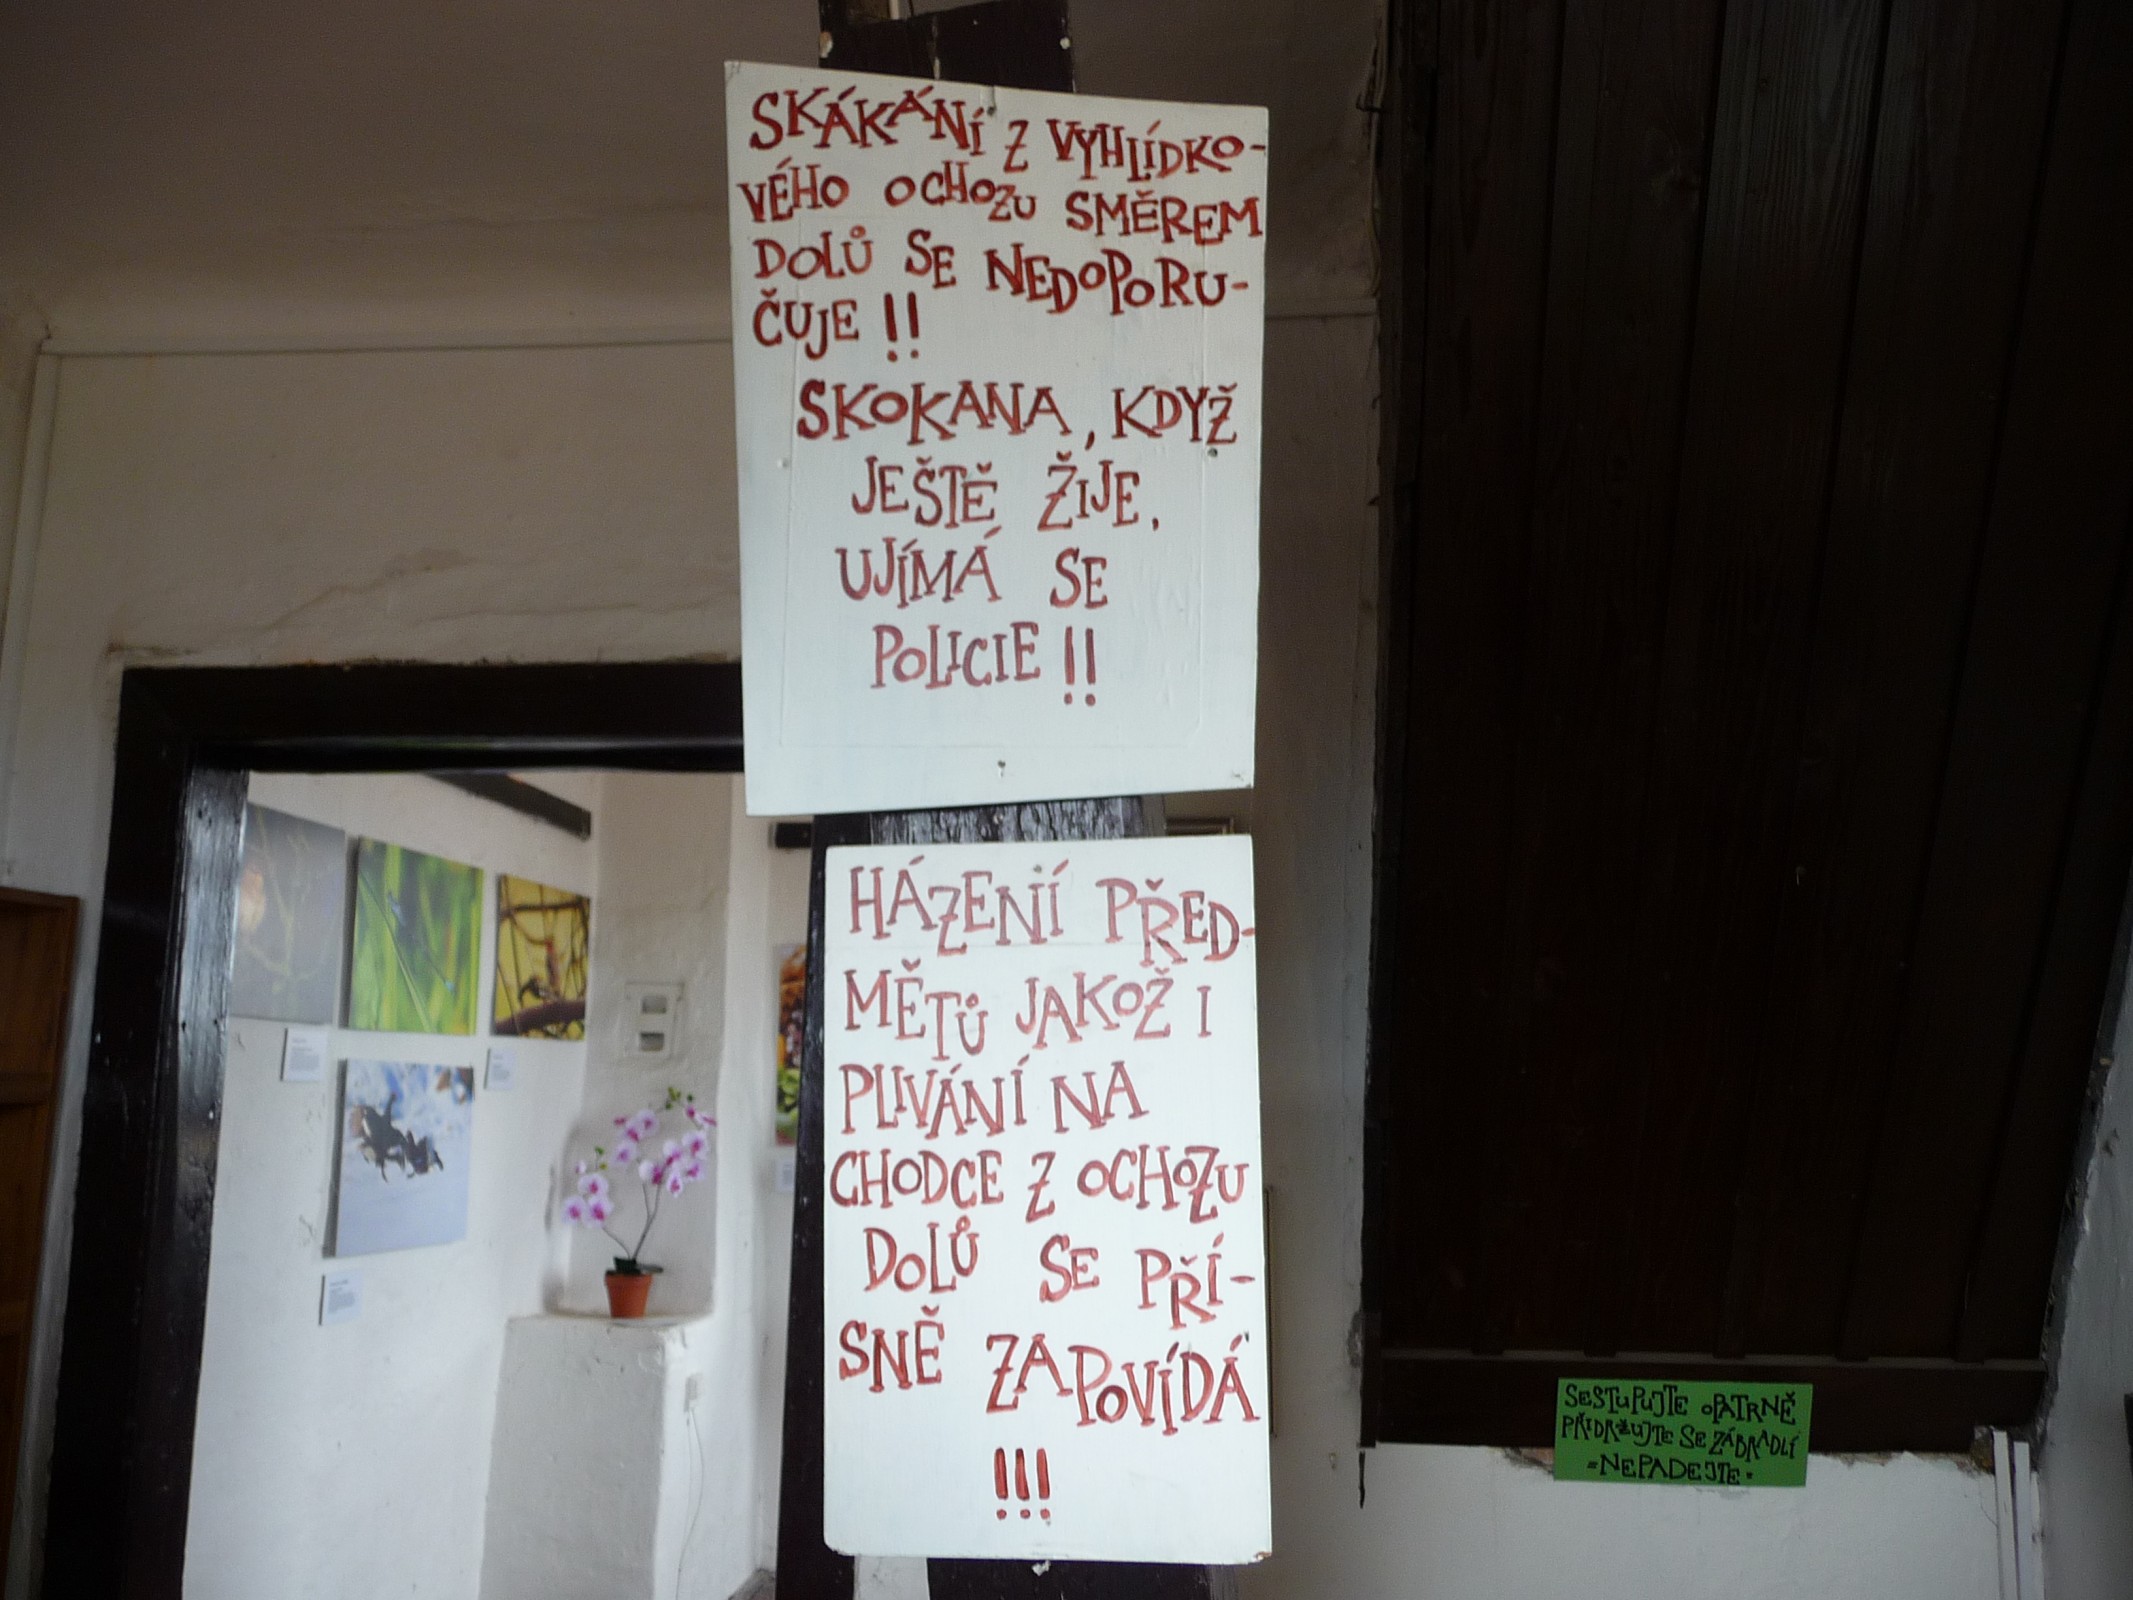 SKÁKÁNÍ Z VYHLÍDKO-
VÉHO OCHOZU SMĚREM
DOLŮ SE NEDOPORU-
ČUJE!!
SKOKANA, KDYŽ
JEŠTĚ ŽIJE,
UJÍMÁ SE
POLICIE!!
HÁZENÍ PŘED-
MĚTŮ JAKOŽ I
PLIVÁNÍ NA
CHODCE Z OCHOZU
DOLŮ SE PŘÍ-
SNĚ ZAPOVÍDÁ
!!!
SESTUPUJTE OPATRNĚ
PŘIDRŽUJTE SE ZÁBRADLÍ
-NEPADEJTE-